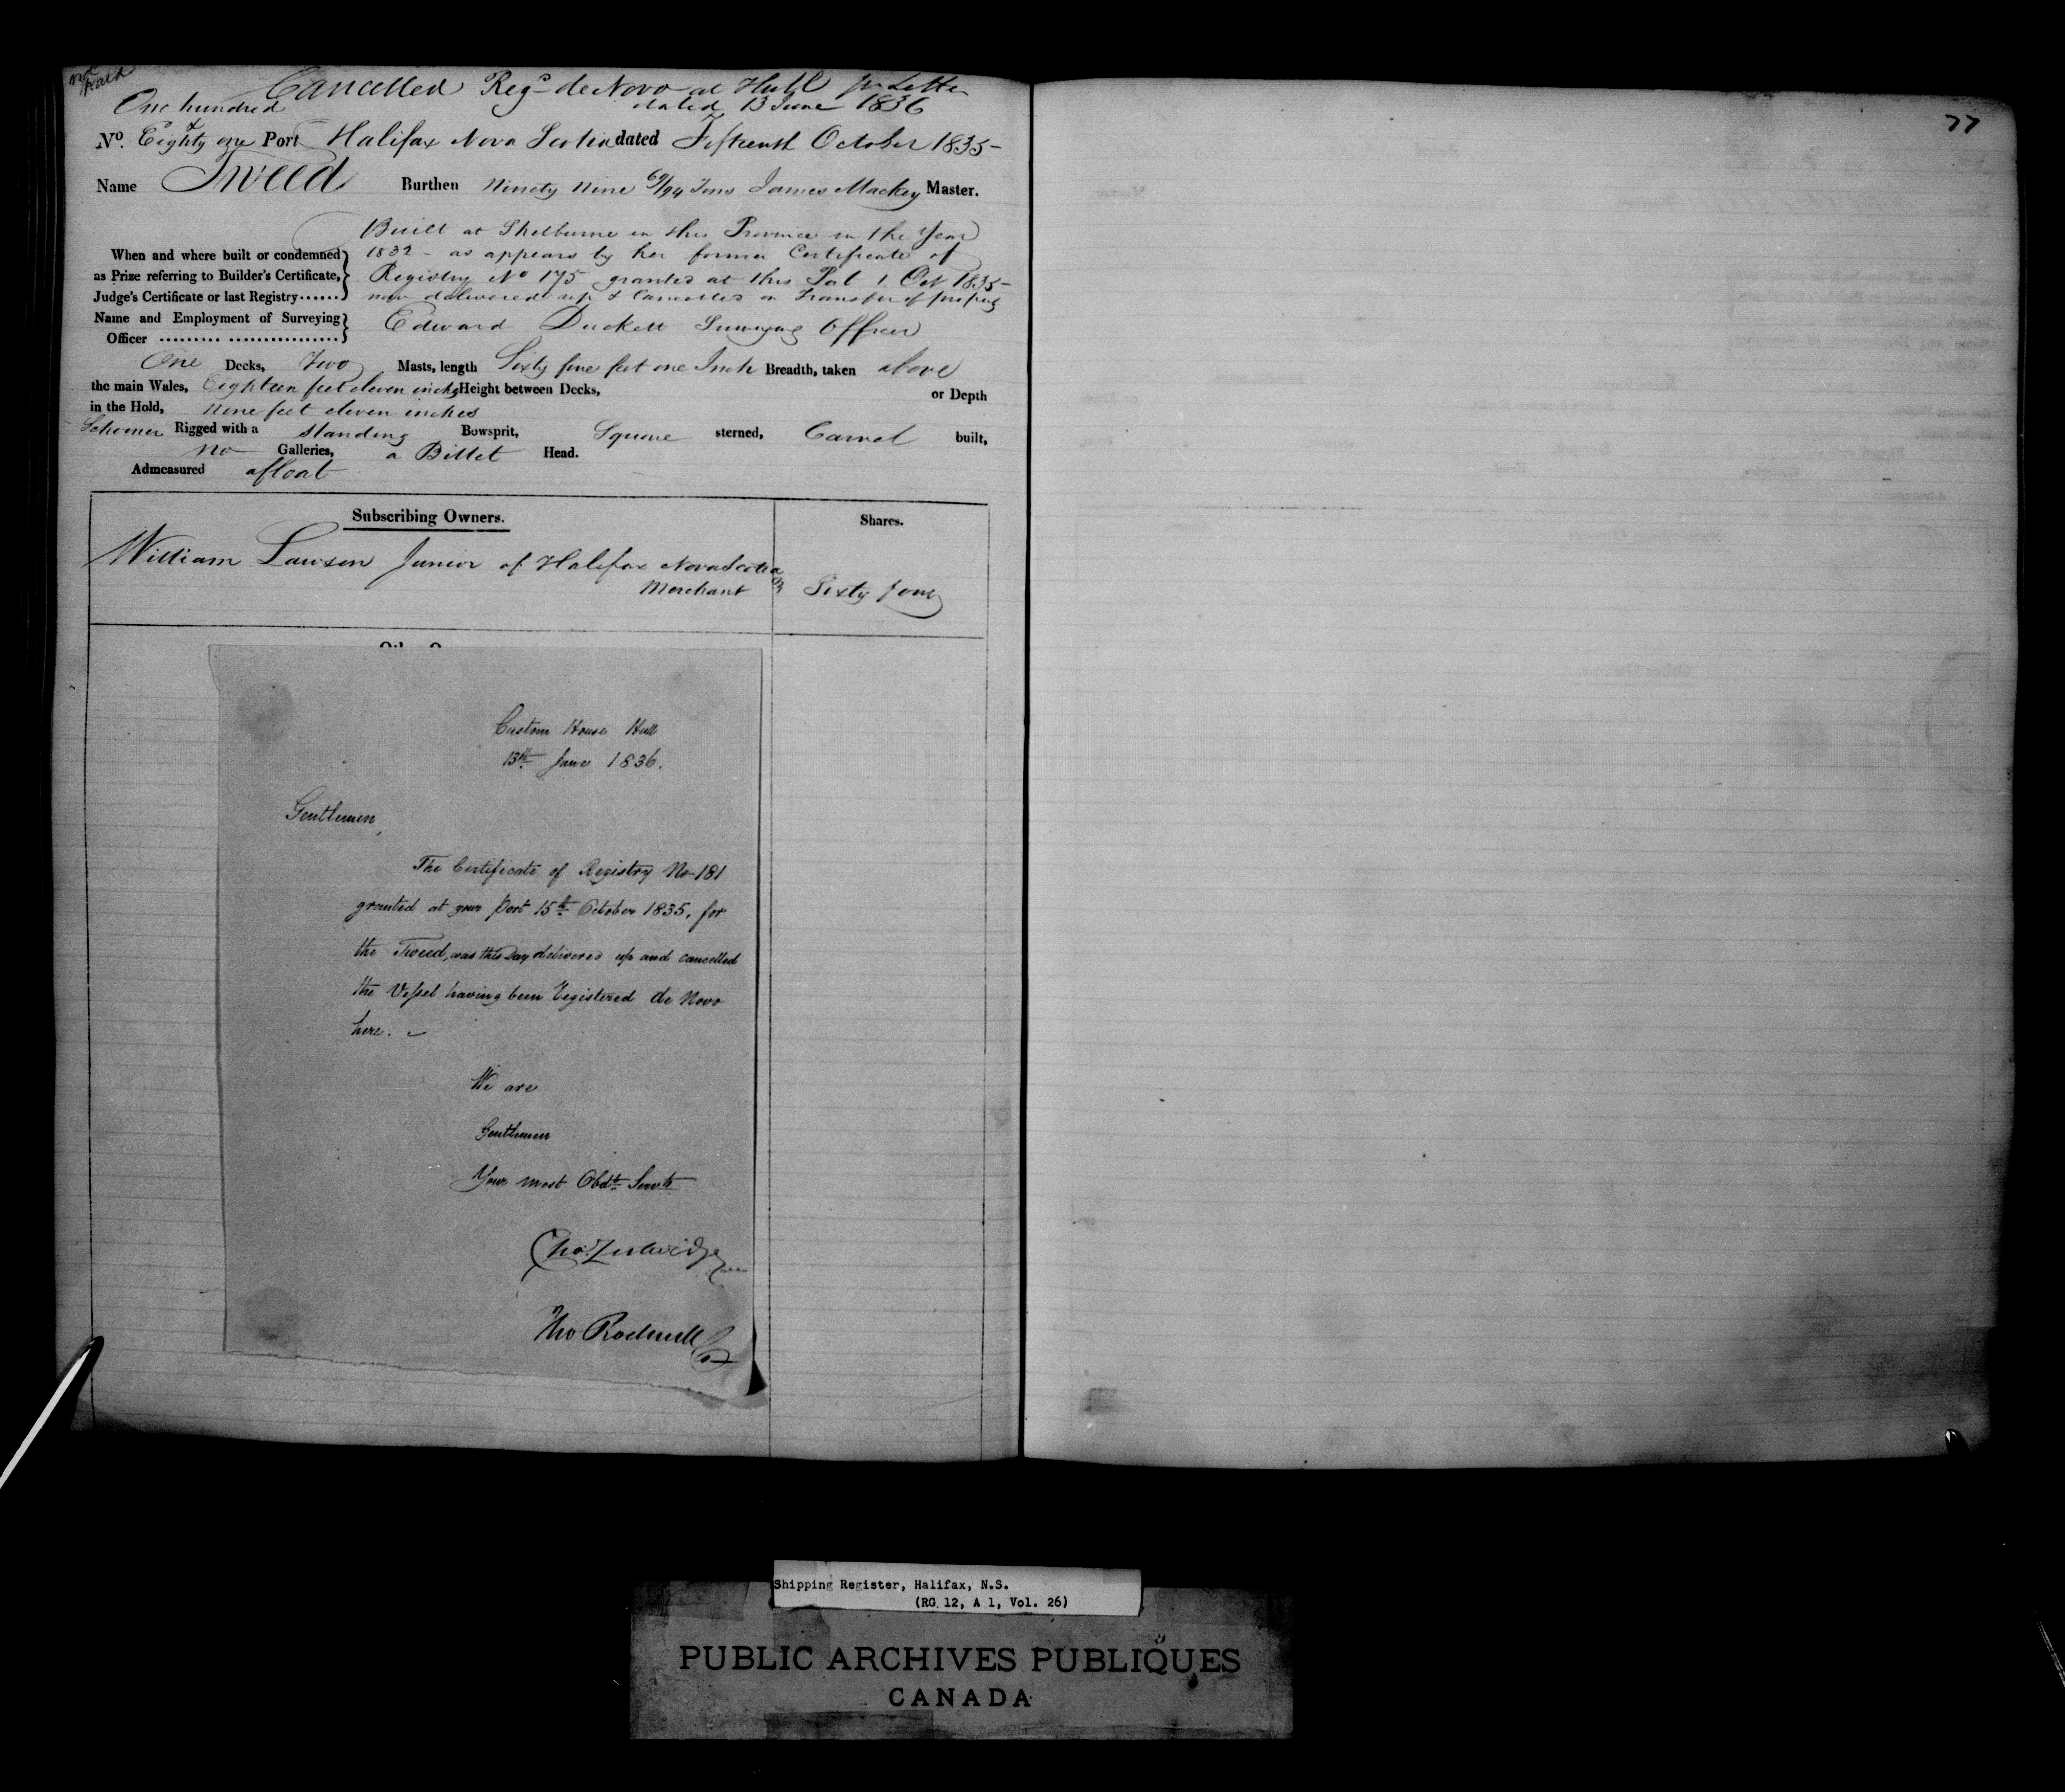 Cancelled Regd de Novo at Hull pr Letter
dated 13 June 1836
One hundred
No. Eighty & one Port Halifax Nova Scotia dated Fifteenth October 1835-
Name Tweed Burthen Ninety Nine 69/94 Tons James Mackey Master.
Built at Shelburne in this Province in the Year
When and where built or condemned 1832 - as appears by her former Certificate of
as Prize referring to Builder's Certificate, Registry No 175 granted at this Port 1 Oct 1835-
Judge's Certificate or last Registry now delivered up & Cancelled on Transfer of property
Name and Employment of Surveying Edward Duckett Surveying Officer
Officer
One Decks, Two Masts, length Sixty five feet one Inch Breadth, taken above
the main Wales, Eighteen feet eleven inches Height between Decks, or Depth
in the Hold, nine feet eleven inches
Schooner Rigged with a standing Bowsprit, Square sterned, Carvel built,
no Galleries, a Billet Head.
Admeasured afloat
Subscribing Owners. Shares.
William Lawson Junior of Halifax Nova Scotia
Merchant Sixty four
Custom House Hull
13th June 1836.
Gentlemen,
The Certificate of Registry No 181
granted at your Port 15th October 1835, for
the Tweed, was this Day delivered up and cancelled
the Vessel having been Registered de Novo
here. -
We are
Gentlemen
Your most Obdt Servts
Tho Rodmell
77
Shipping Register, Halifax, N.S.
(RG 12, A 1, Vol. 26)
PUBLIC ARCHIVES PUBLIQUES
CANADA